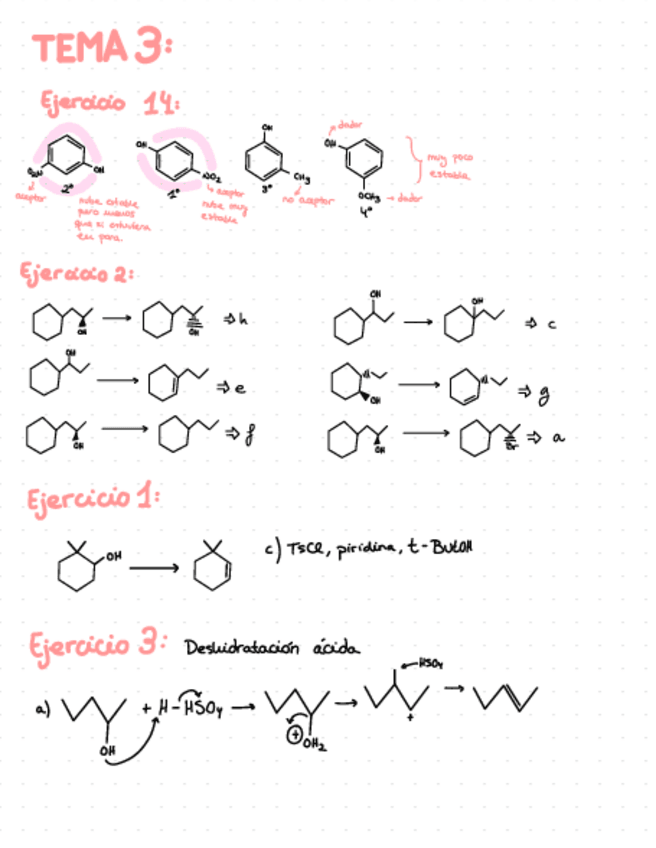 TEMA 3:
Ejercicio 14:
OH
OH
OH
dador
O₂N
OH
NO₂
CH₃
OCH₃
dador
aceptor
2º
1º
3º
4º
no aceptor
muy poco
estable
nube estable
pero menos
que si estuviera
en para.
aceptor
nube muy
estable
Ejercicio 2:
OH → OH ⇒ h
OH → OH ⇒ c
OH → ⇒ e
OH → ⇒ g
OH → ⇒ f
OH → Br ⇒ a
Ejercicio 1:
OH → c) TsCl, piridina, t-ButOH
Ejercicio 3: Deshidratación ácida
a) OH + H-HSO₄ → ⊕OH₂ → + HSO₄ →